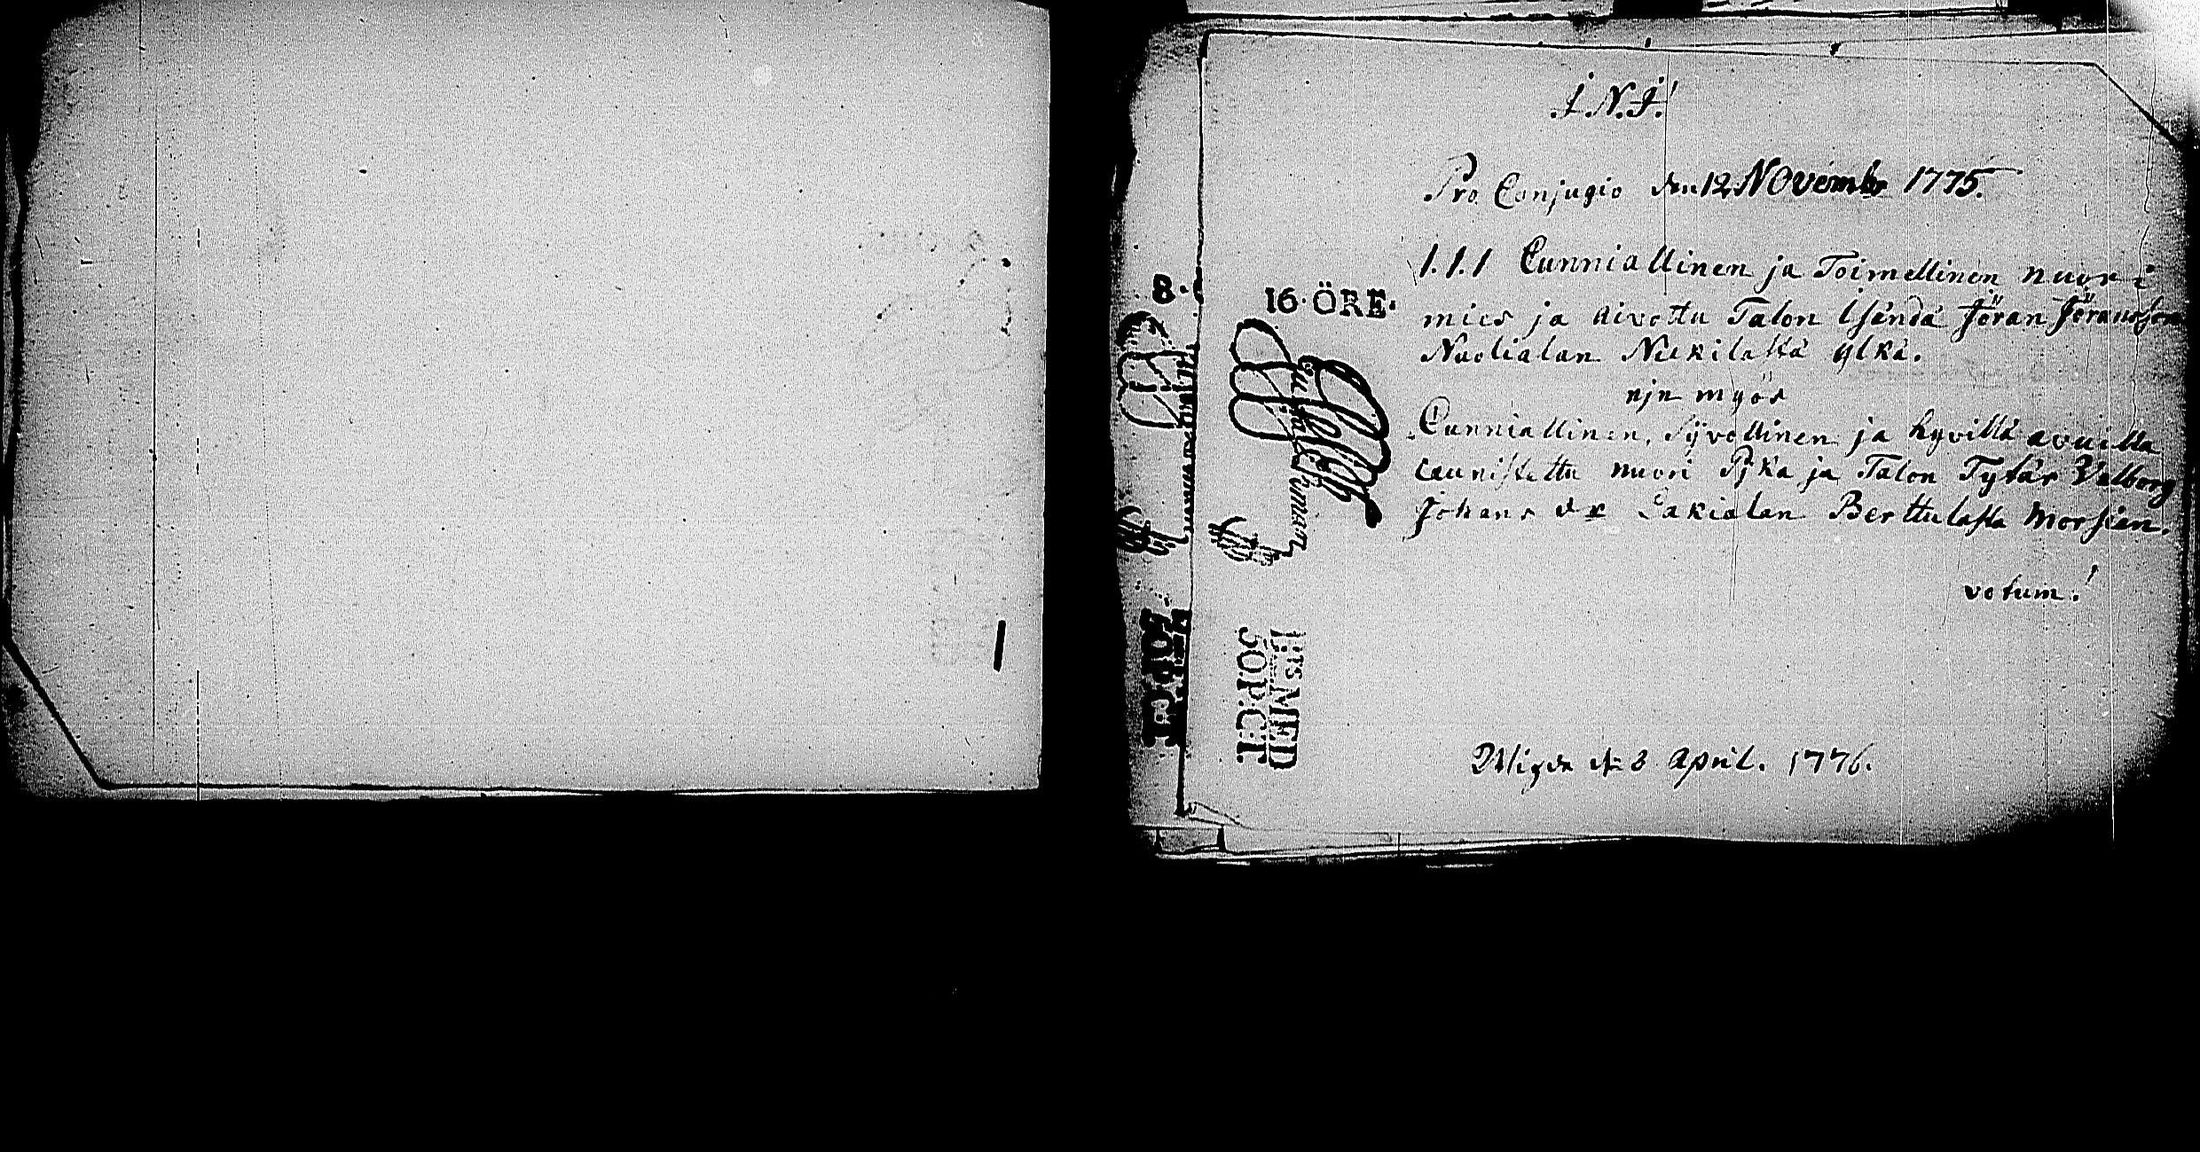 I.N.J.!
Pro Conjugio den 12 Novembr 1775.
1.1.1 Cunniallinen ja Toimellinen nuori
mies ja aivottu Talon Isändä Jöran Jöransson
Nuolialan Nickilästä ylkä.
njn myös
Cunniallinen, Sijvollinen ja hyvillä avuilla
caunistettu nuori Pijka ja Talon Tytär Valborg
Johans dr Lakialan Berttulasta Morsian.
votum!
Wigde d 8 April. 1776.
16 ÖRE.
MED
50.P.CT.
8.